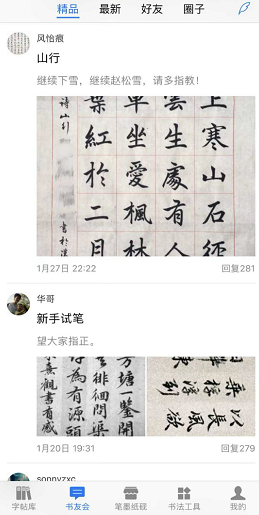 精品 最新 好友 圈子
风怡痕
山行
继续下雪，继续赵松雪，请多指教！
上寒山石径
云生處有人
車坐愛楓林
葉紅於二月
詩 山行
1月27日 22:22 回复281
华哥
新手试笔
望大家指正。
方塘一鑒開
雲徘徊問渠
得為有源頭
朱熹觀書有感
乘桴浮
以長風欲
1月20日 19:31 回复279
sonnyzxc
字帖库 书友会 笔墨纸砚 书法工具 我的